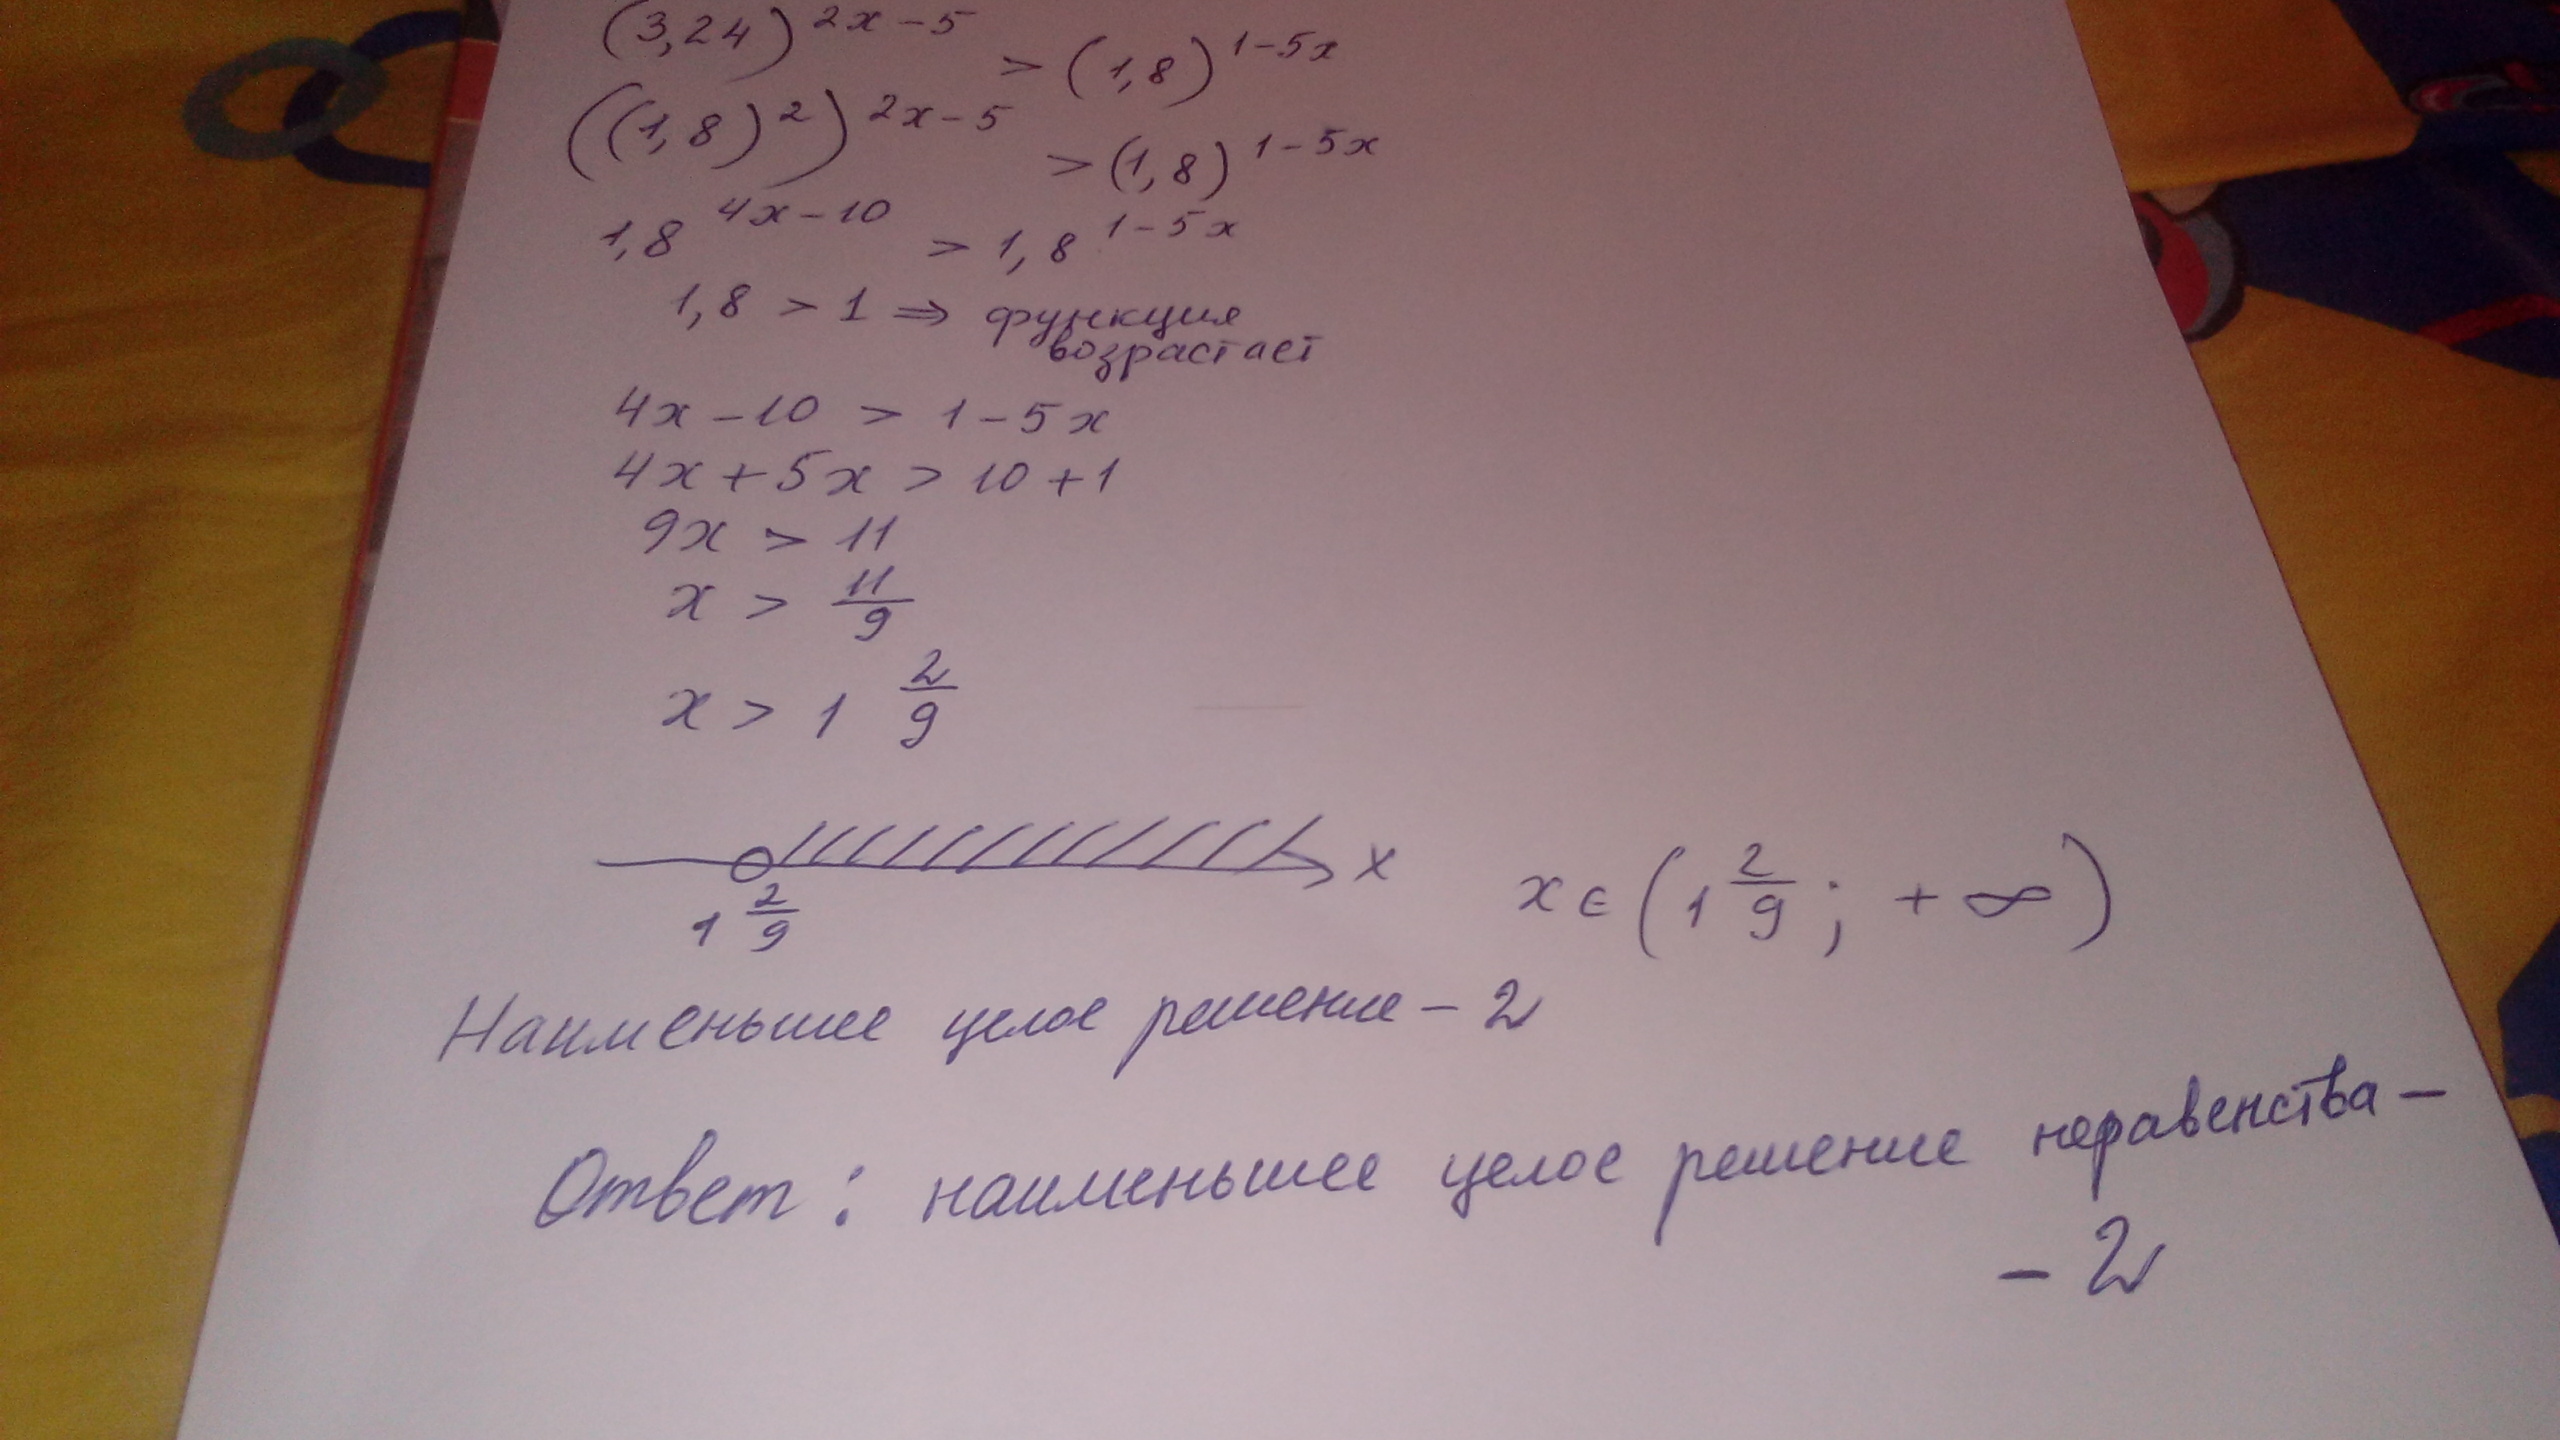 (3,24)^{2x-5} > (1,8)^{1-5x}
((1,8)^2)^{2x-5} > (1,8)^{1-5x}
1,8^{4x-10} > 1,8^{1-5x}
1,8 > 1 ⇒ функция
возрастает
4x - 10 > 1 - 5x
4x + 5x > 10 + 1
9x > 11
x > 11/9
x > 1 2/9
x
1 2/9
x ∈ (1 2/9; +∞)
Наименьшее целое решение - 2
Ответ: наименьшее целое решение неравенства -
- 2